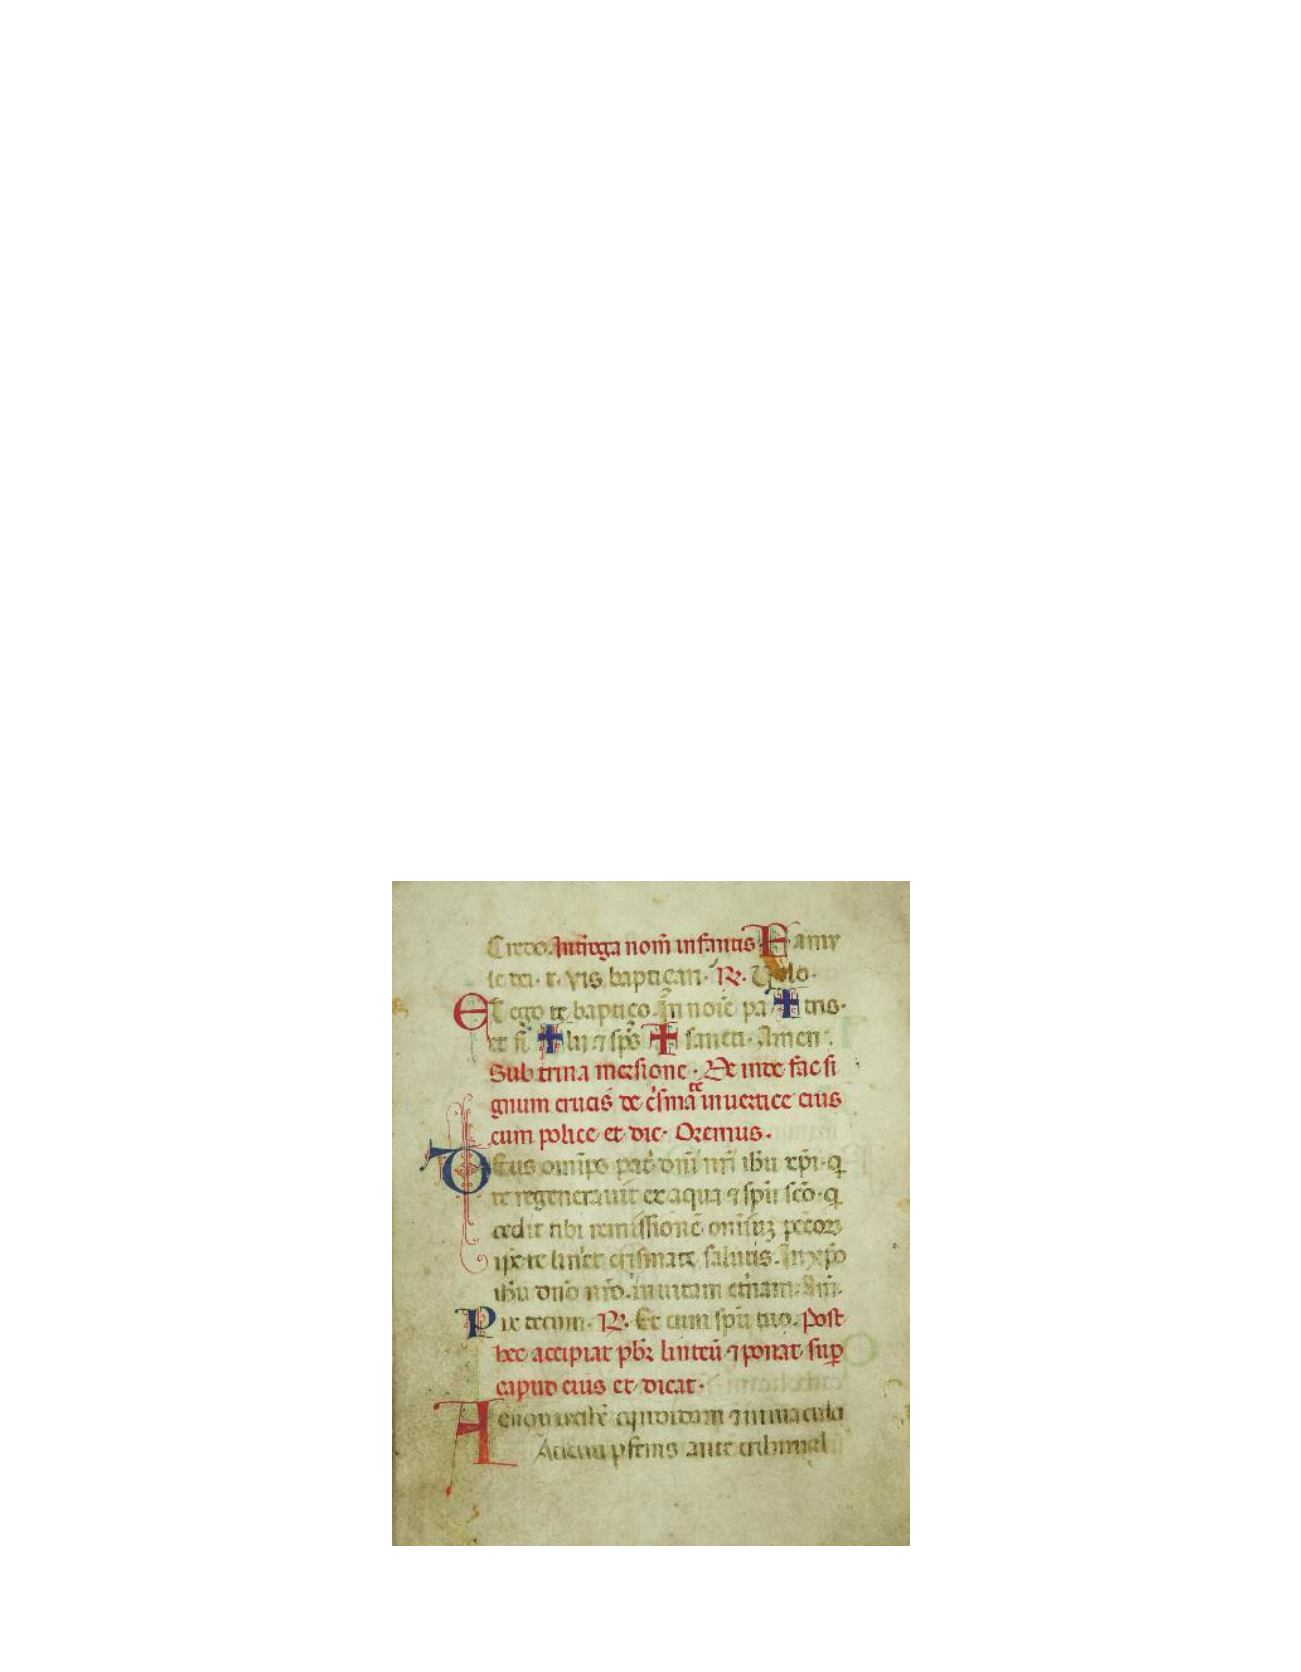 Credo. Int̄roga nom̄ infantis Famu
le dei .r. vis baptiçari. R. Volo.
Et ego te baptiço. In noīe pa ✝ tris.
et fi ✝ lii ⁊ sp̄s ✝ sancti. Amen.
Sub trina mersione. Et inde fac si
gnum crucis de c̄smate in uertice eius
cum police et dic. Oremus.
Deus omīps pat̄ dn̄i nr̄i ih̄u xp̄i. q̄
te regenerauit ex aqua ⁊ sp̄u sc̄o. q̄
dedit tibi remissionē om̄iuꝫ pecc̄oꝝ
ip̄e te lin̄et crismate salutis. In xp̄o
ih̄u dn̄o nr̄o. in uitam et̄nam. Am̄.
Pax tecum. R. Et cum sp̄u tuo. Post
hec accipiat pbr̄ linteū ⁊ ponat sup̄
caput eius et dicat.
Accipe uestē candidam ⁊ inmacula
ante tribunal